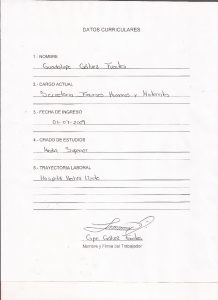 DATOS CURRICULARES
1.- NOMBRE
Guadalupe Gálvez Fuentes
2.- CARGO ACTUAL
Secretaria Recursos Humanos y Materiales
3.- FECHA DE INGRESO
01-07-2009
4.- GRADO DE ESTUDIOS
Media Superior
5.- TRAYECTORIA LABORAL
Hospital
Gpe Gálvez Fuentes
Nombre y Firma del Trabajador